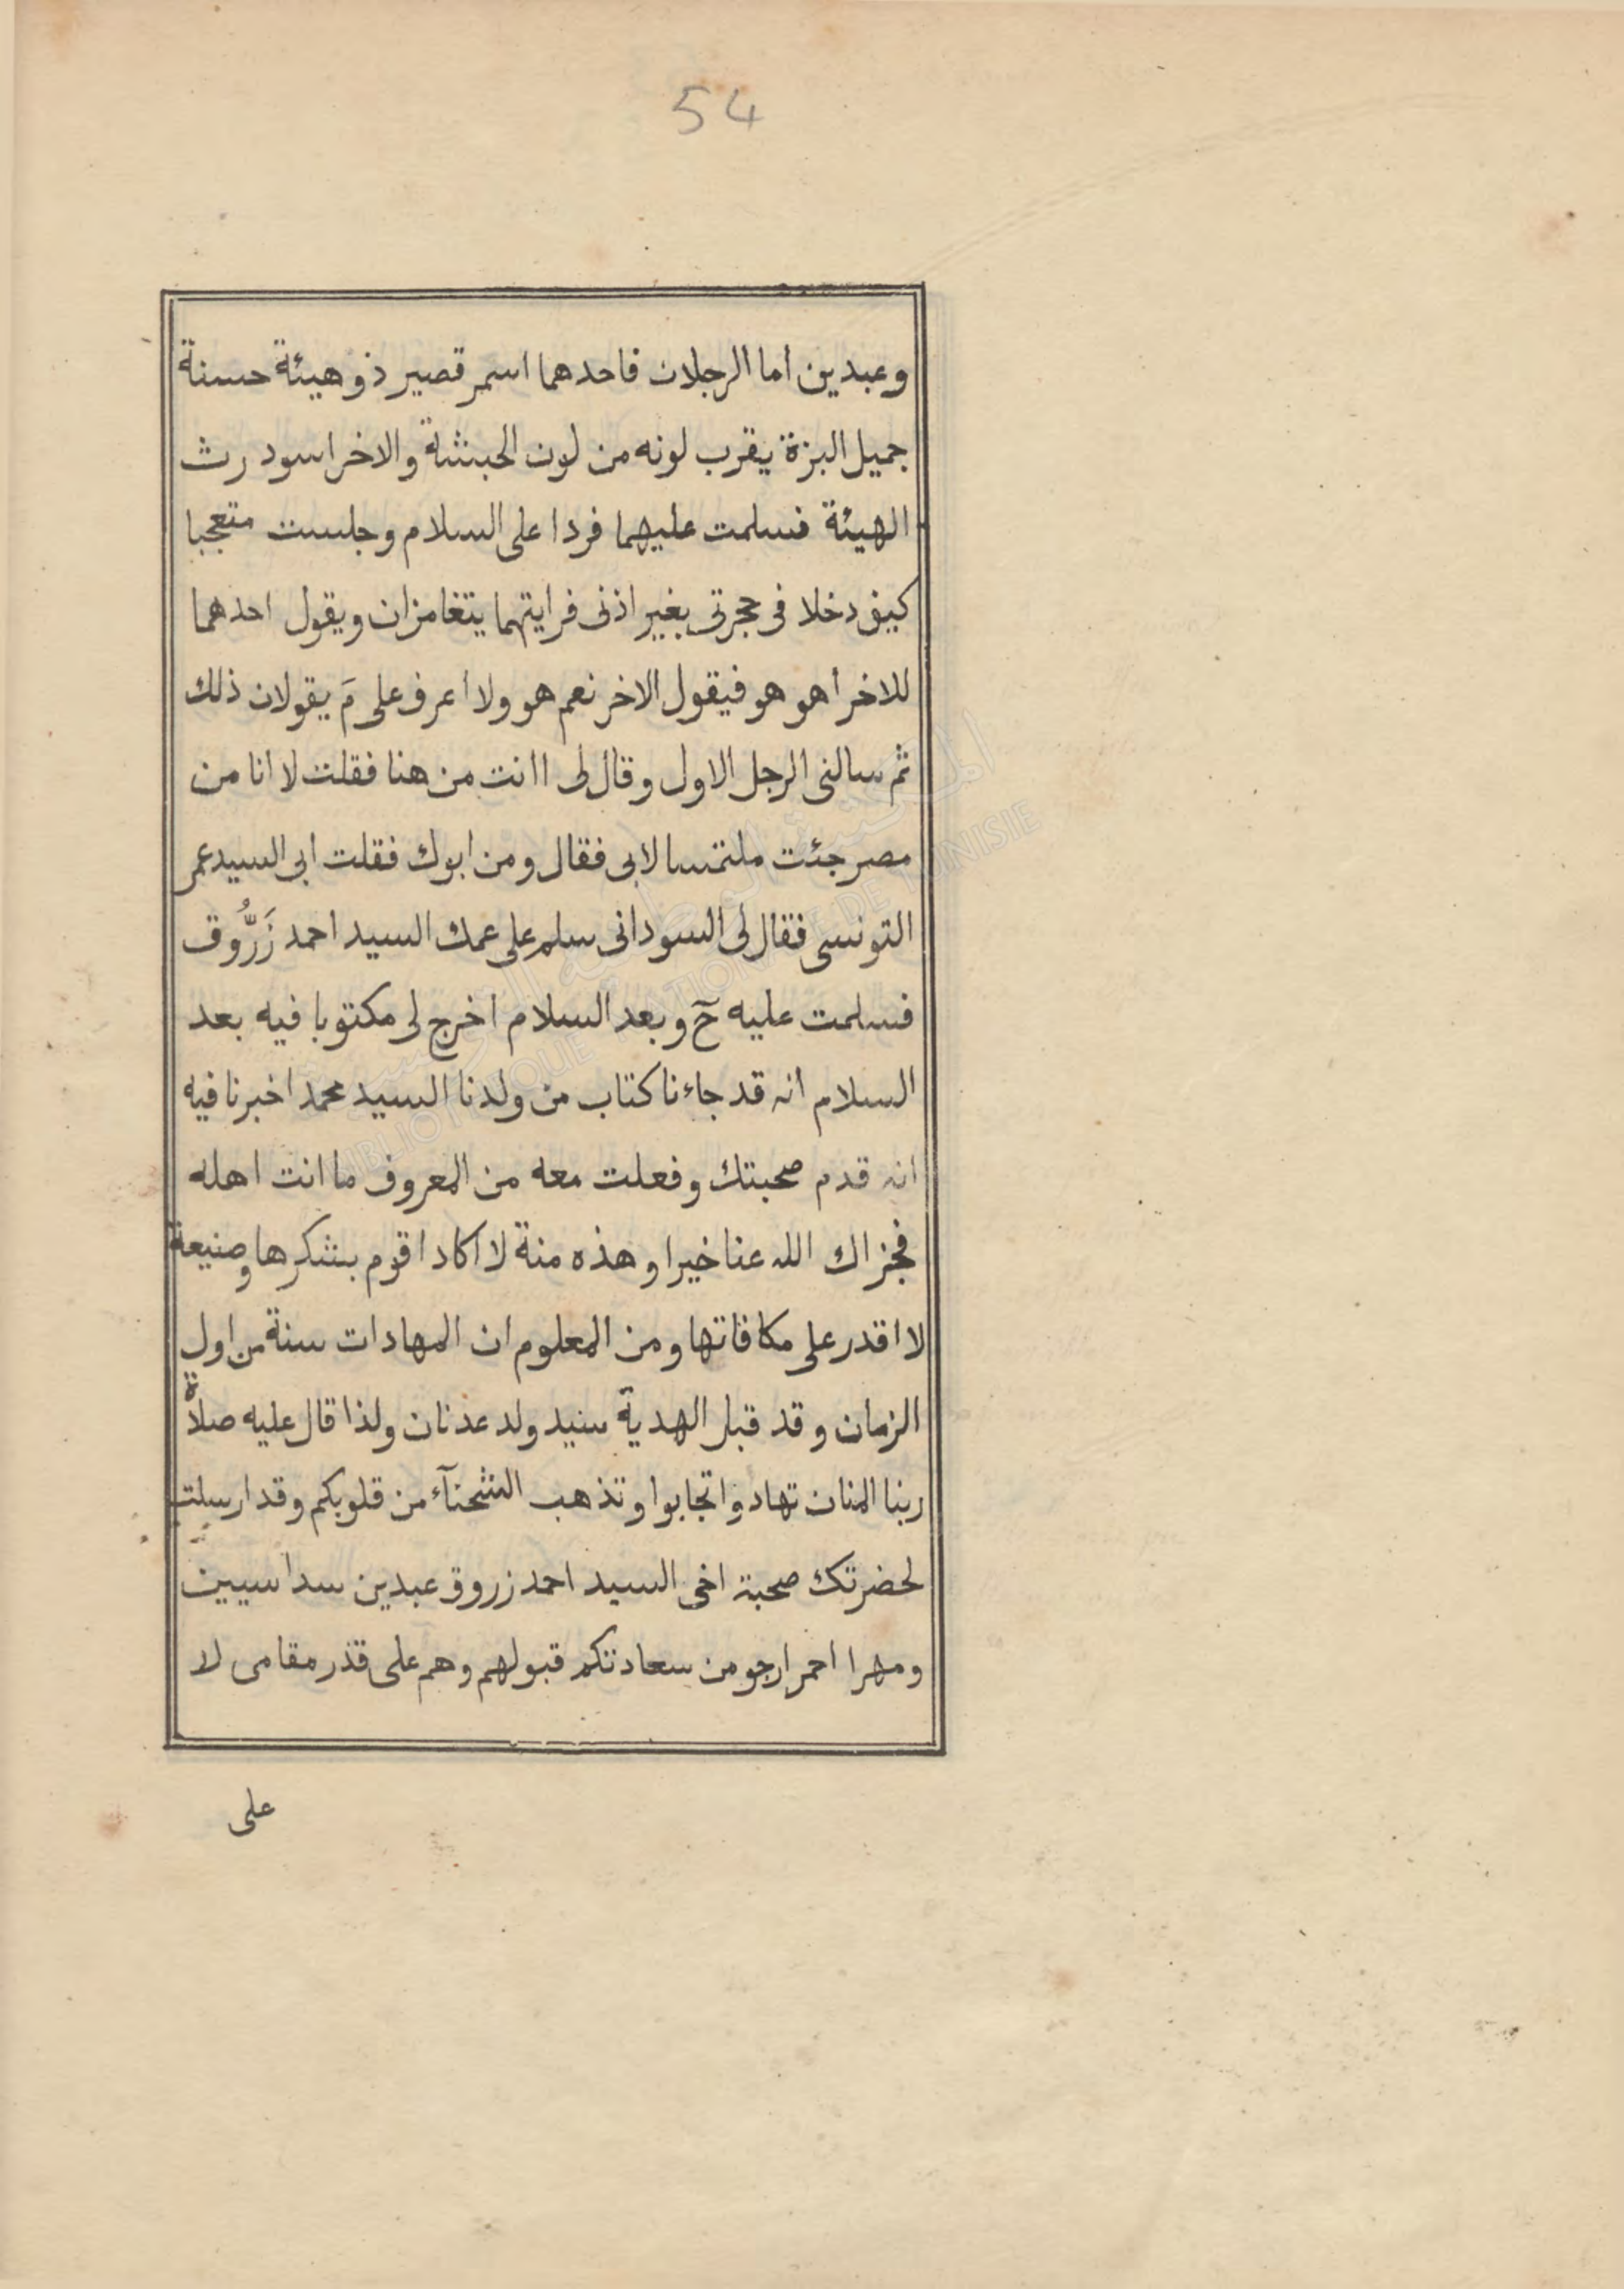 54
وعبدين اما الرجلان فاحدهما اسمر قصير ذو هيئة حسنة
جميل البزة يقرب لونه من لون الحبشة والاخر اسود رث
الهيئة فسلمت عليهما فردا على السلام وجلست متعجبا
كيف دخلا فى حجرتى بغير اذنى فرايتهما يتغامزان ويقول احدهما
للاخر أهو هو فيقول الاخر نعم هو ولا أعرف على مَ يقولان ذلك
ثم سالنى الرجل الاول وقال لى اانت من هنا فقلت لا انا من
مصر جئت ملتمسا لابى فقال ومن ابوك فقلت ابى السيد عمر
التونسى فقال لى السودانى سلم على عمك السيد احمد زَرُّوق
فسلمت عليه حٓ وبعد السلام اخرج لى مكتوبا فيه بعد
السلام انه قد جاءنا كتاب من ولدنا السيد محمد اخبرنا فيه
انه قدم صحبتك وفعلت معه من المعروف ما انت اهله
فجزاك الله عنا خيرا وهذه منة لا اكاد اقوم بشكرها وصنيعة
لا اقدر على مكافاتها ومن المعلوم ان المهادات سنة من اول
الزمان وقد قبل الهدية سيد ولد عدنان ولذا قال عليه صلاةُ
ربنا المنان تهادوا تحابوا وتذهب الشحنآء من قلوبكم وقد ارسلت
لحضرتك صحبة اخى السيد احمد زروق عبدين سداسيين
ومهرا احمر ارجو من سعادتكم قبولهم وهم على قدر مقامى لا
على
المكتبة الوطنية التونسية
BIBLIOTHEQUE NATIONALE DE TUNISIE